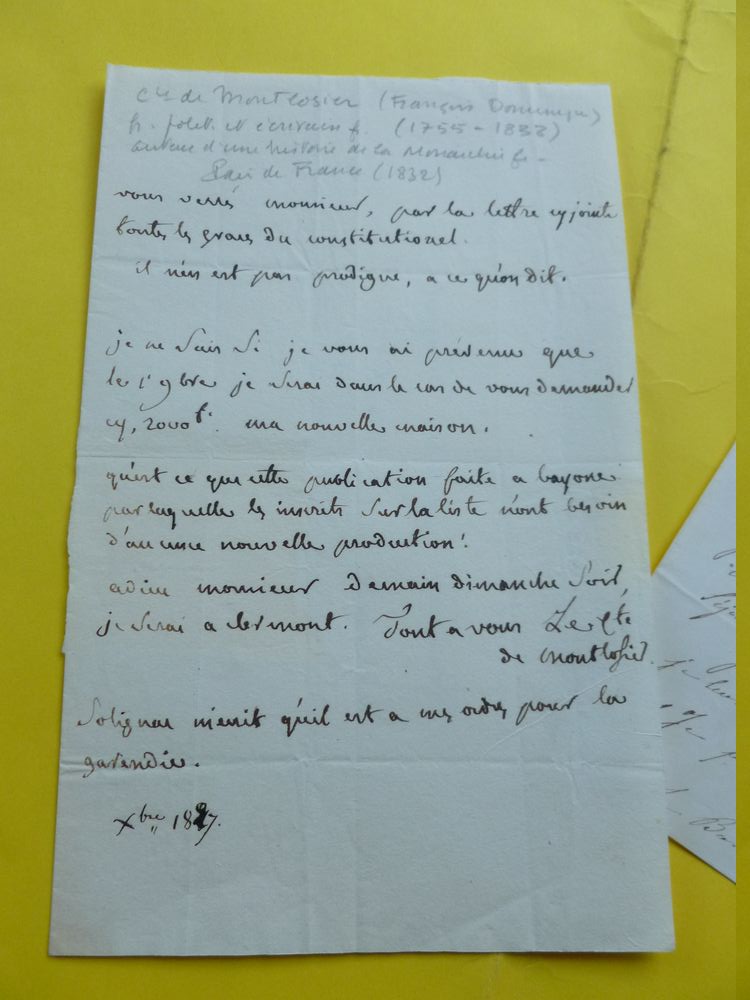 Cte de Montlosier (François Dominique)
h. polit. et écrivain f. (1755-1838)
auteur d'une histoire de la Monarchie f.
Pair de France (1832)
vous verrés monsieur, par la lettre cy jointe
toutes les graces du constitutionel.
il n'en est pas prodigue, a ce qu'on dit.
je ne sais si je vous ai prévenu que
le 1er 9bre je serai dans le cas de vous demander
cy, 2000 f. ma nouvelle maison.
qu'est ce que cette publication faite a bayone
par laquelle les inscrits sur la liste n'ont besoin
d'aucune nouvelle production!
adieu monsieur demain dimanche soir,
je serai a clermont. Tout a vous Le Cte
de Montlosier.
Solignac m'ecrit qu'il est a mes ordres pour la
garendie.
Xbre 1827.